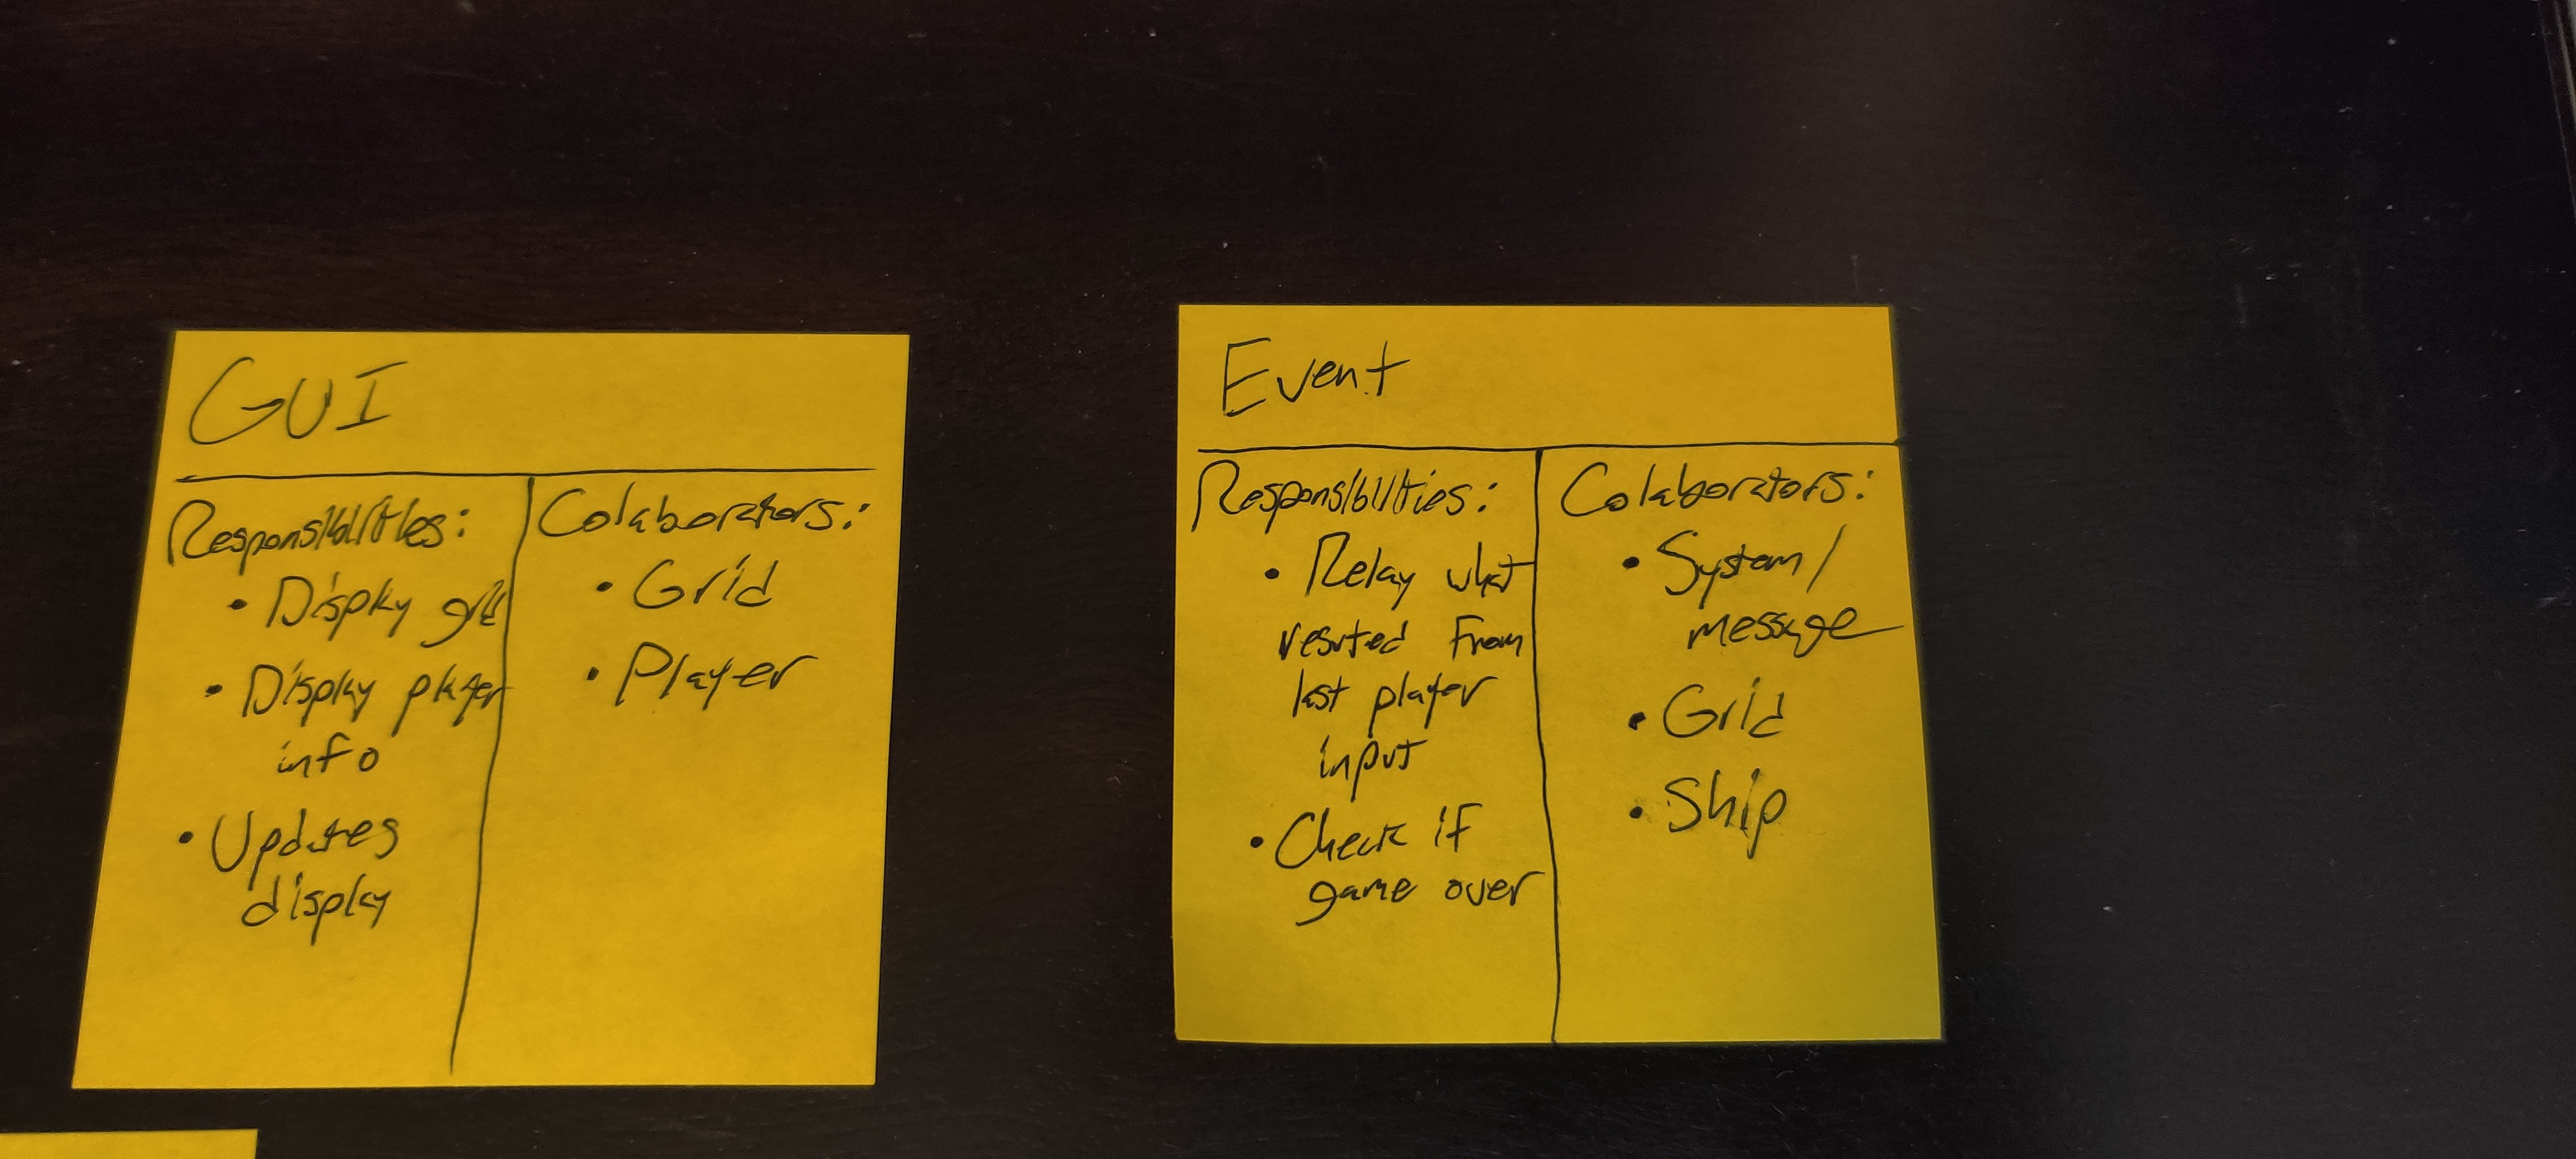 GUI
Responsibilities:
• Display grid
• Display player
info
• Updates
display
Colaborators:
• Grid
• Player
Event
Responsibilities:
• Relay what
resulted from
last player
input
• Check if
game over
Colaborators:
• System/
message
• Grid
• Ship